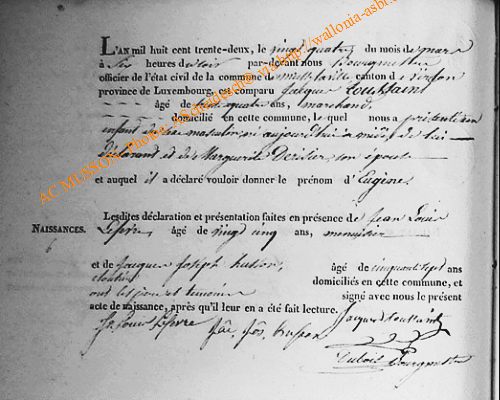 L'AN mil huit cent trente-deux, le vingt quatre du mois de mars
à six heures du soir par-devant nous Bourgmestre
officier de l'état civil de la commune de canton de virton
province de Luxembourg, est comparu Jacques Toussaint
âgé de trente quatre ans, marchand,
domicilié en cette commune, le quel nous a présenté un
enfant du sexe masculin, né aujourd'hui à midi, de lui
déclarant et de Marguerite son épouse
et auquel il a déclaré vouloir donner le prénom d'Eugène.
NAISSANCES.
6
Lesdites déclaration et présentation faites en présence de Jean Louis
Lefevre, âgé de vingt cinq ans, menuisier
et de Jacques Joseph husson, âgé de cinquante sept ans
cloutier domiciliés en cette commune, et
ont les père et témoins signé avec nous le présent
acte de naissance, après qu'il leur en a été fait lecture.
Jn Louis Lefevre Jac. Jos. husson Jacques toussaint
Dubois Bourgmestre